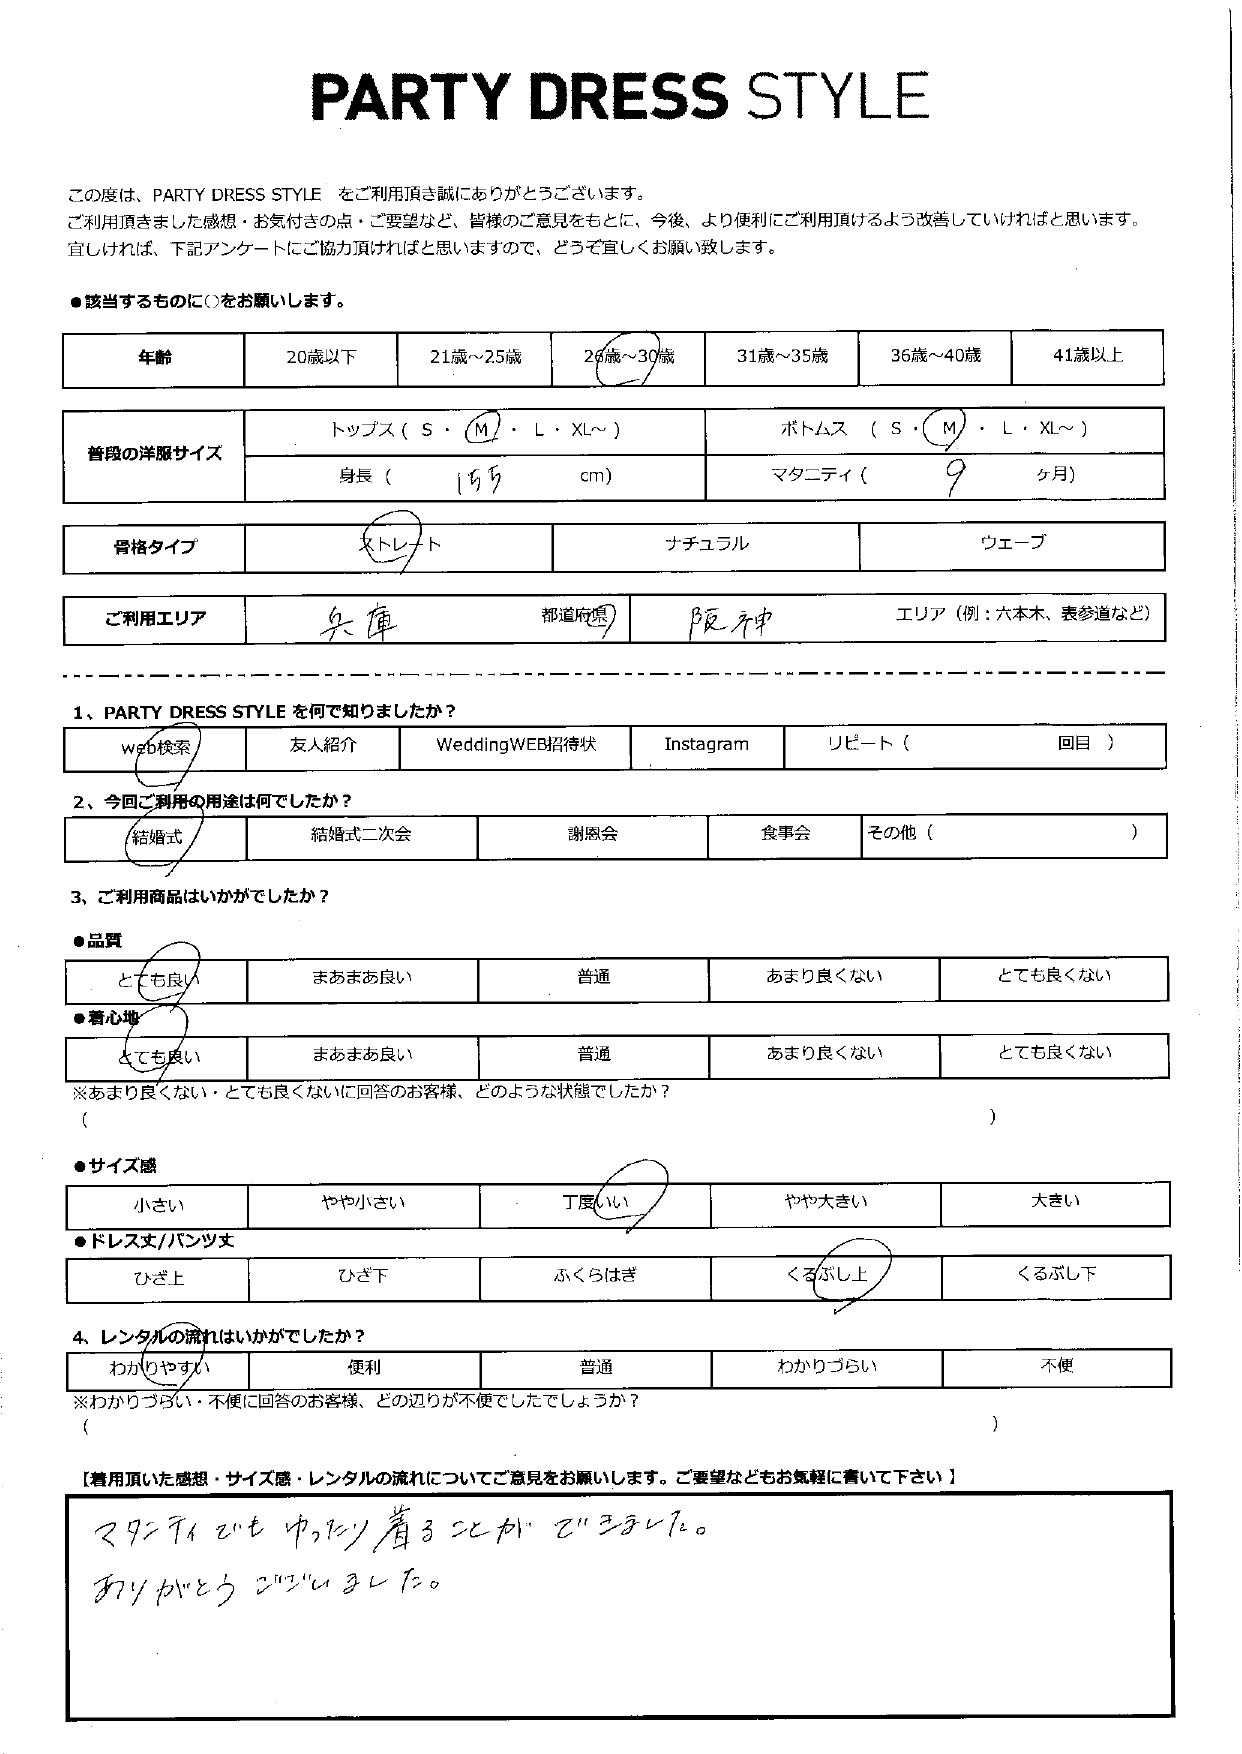 PARTY DRESS STYLE
この度は、PARTY DRESS STYLE　をご利用頂き誠にありがとうございます。
ご利用頂きました感想・お気付きの点・ご要望など、皆様のご意見をもとに、今後、より便利にご利用頂けるよう改善していければと思います。
宜しければ、下記アンケートにご協力頂ければと思いますので、どうぞ宜しくお願い致します。
●該当するものに○をお願いします。
年齢 20歳以下 21歳～25歳 26歳～30歳 31歳～35歳 36歳～40歳 41歳以上
普段の洋服サイズ トップス ( S ・ M ・ L ・ XL～ ) ボトムス ( S ・ M ・ L ・ XL～ )
身長 ( 155 cm) マタニティ ( 9 ヶ月)
骨格タイプ ストレート ナチュラル ウェーブ
ご利用エリア 兵庫 都道府県 阪神 エリア（例：六本木、表参道など）
1、PARTY DRESS STYLE を何で知りましたか？
web検索 友人紹介 WeddingWEB招待状 Instagram リピート ( 回目 )
2、今回ご利用の用途は何でしたか？
結婚式 結婚式二次会 謝恩会 食事会 その他 ( )
3、ご利用商品はいかがでしたか？
●品質
とても良い まあまあ良い 普通 あまり良くない とても良くない
●着心地
とても良い まあまあ良い 普通 あまり良くない とても良くない
※あまり良くない・とても良くないに回答のお客様、どのような状態でしたか？
( )
●サイズ感
小さい やや小さい 丁度いい やや大きい 大きい
●ドレス丈/パンツ丈
ひざ上 ひざ下 ふくらはぎ くるぶし上 くるぶし下
4、レンタルの流れはいかがでしたか？
わかりやすい 便利 普通 わかりづらい 不便
※わかりづらい・不便に回答のお客様、どの辺りが不便でしたでしょうか？
( )
【着用頂いた感想・サイズ感・レンタルの流れについてご意見をお願いします。ご要望などもお気軽に書いて下さい】
マタニティでもゆったり着ることができました。
ありがとうございました。